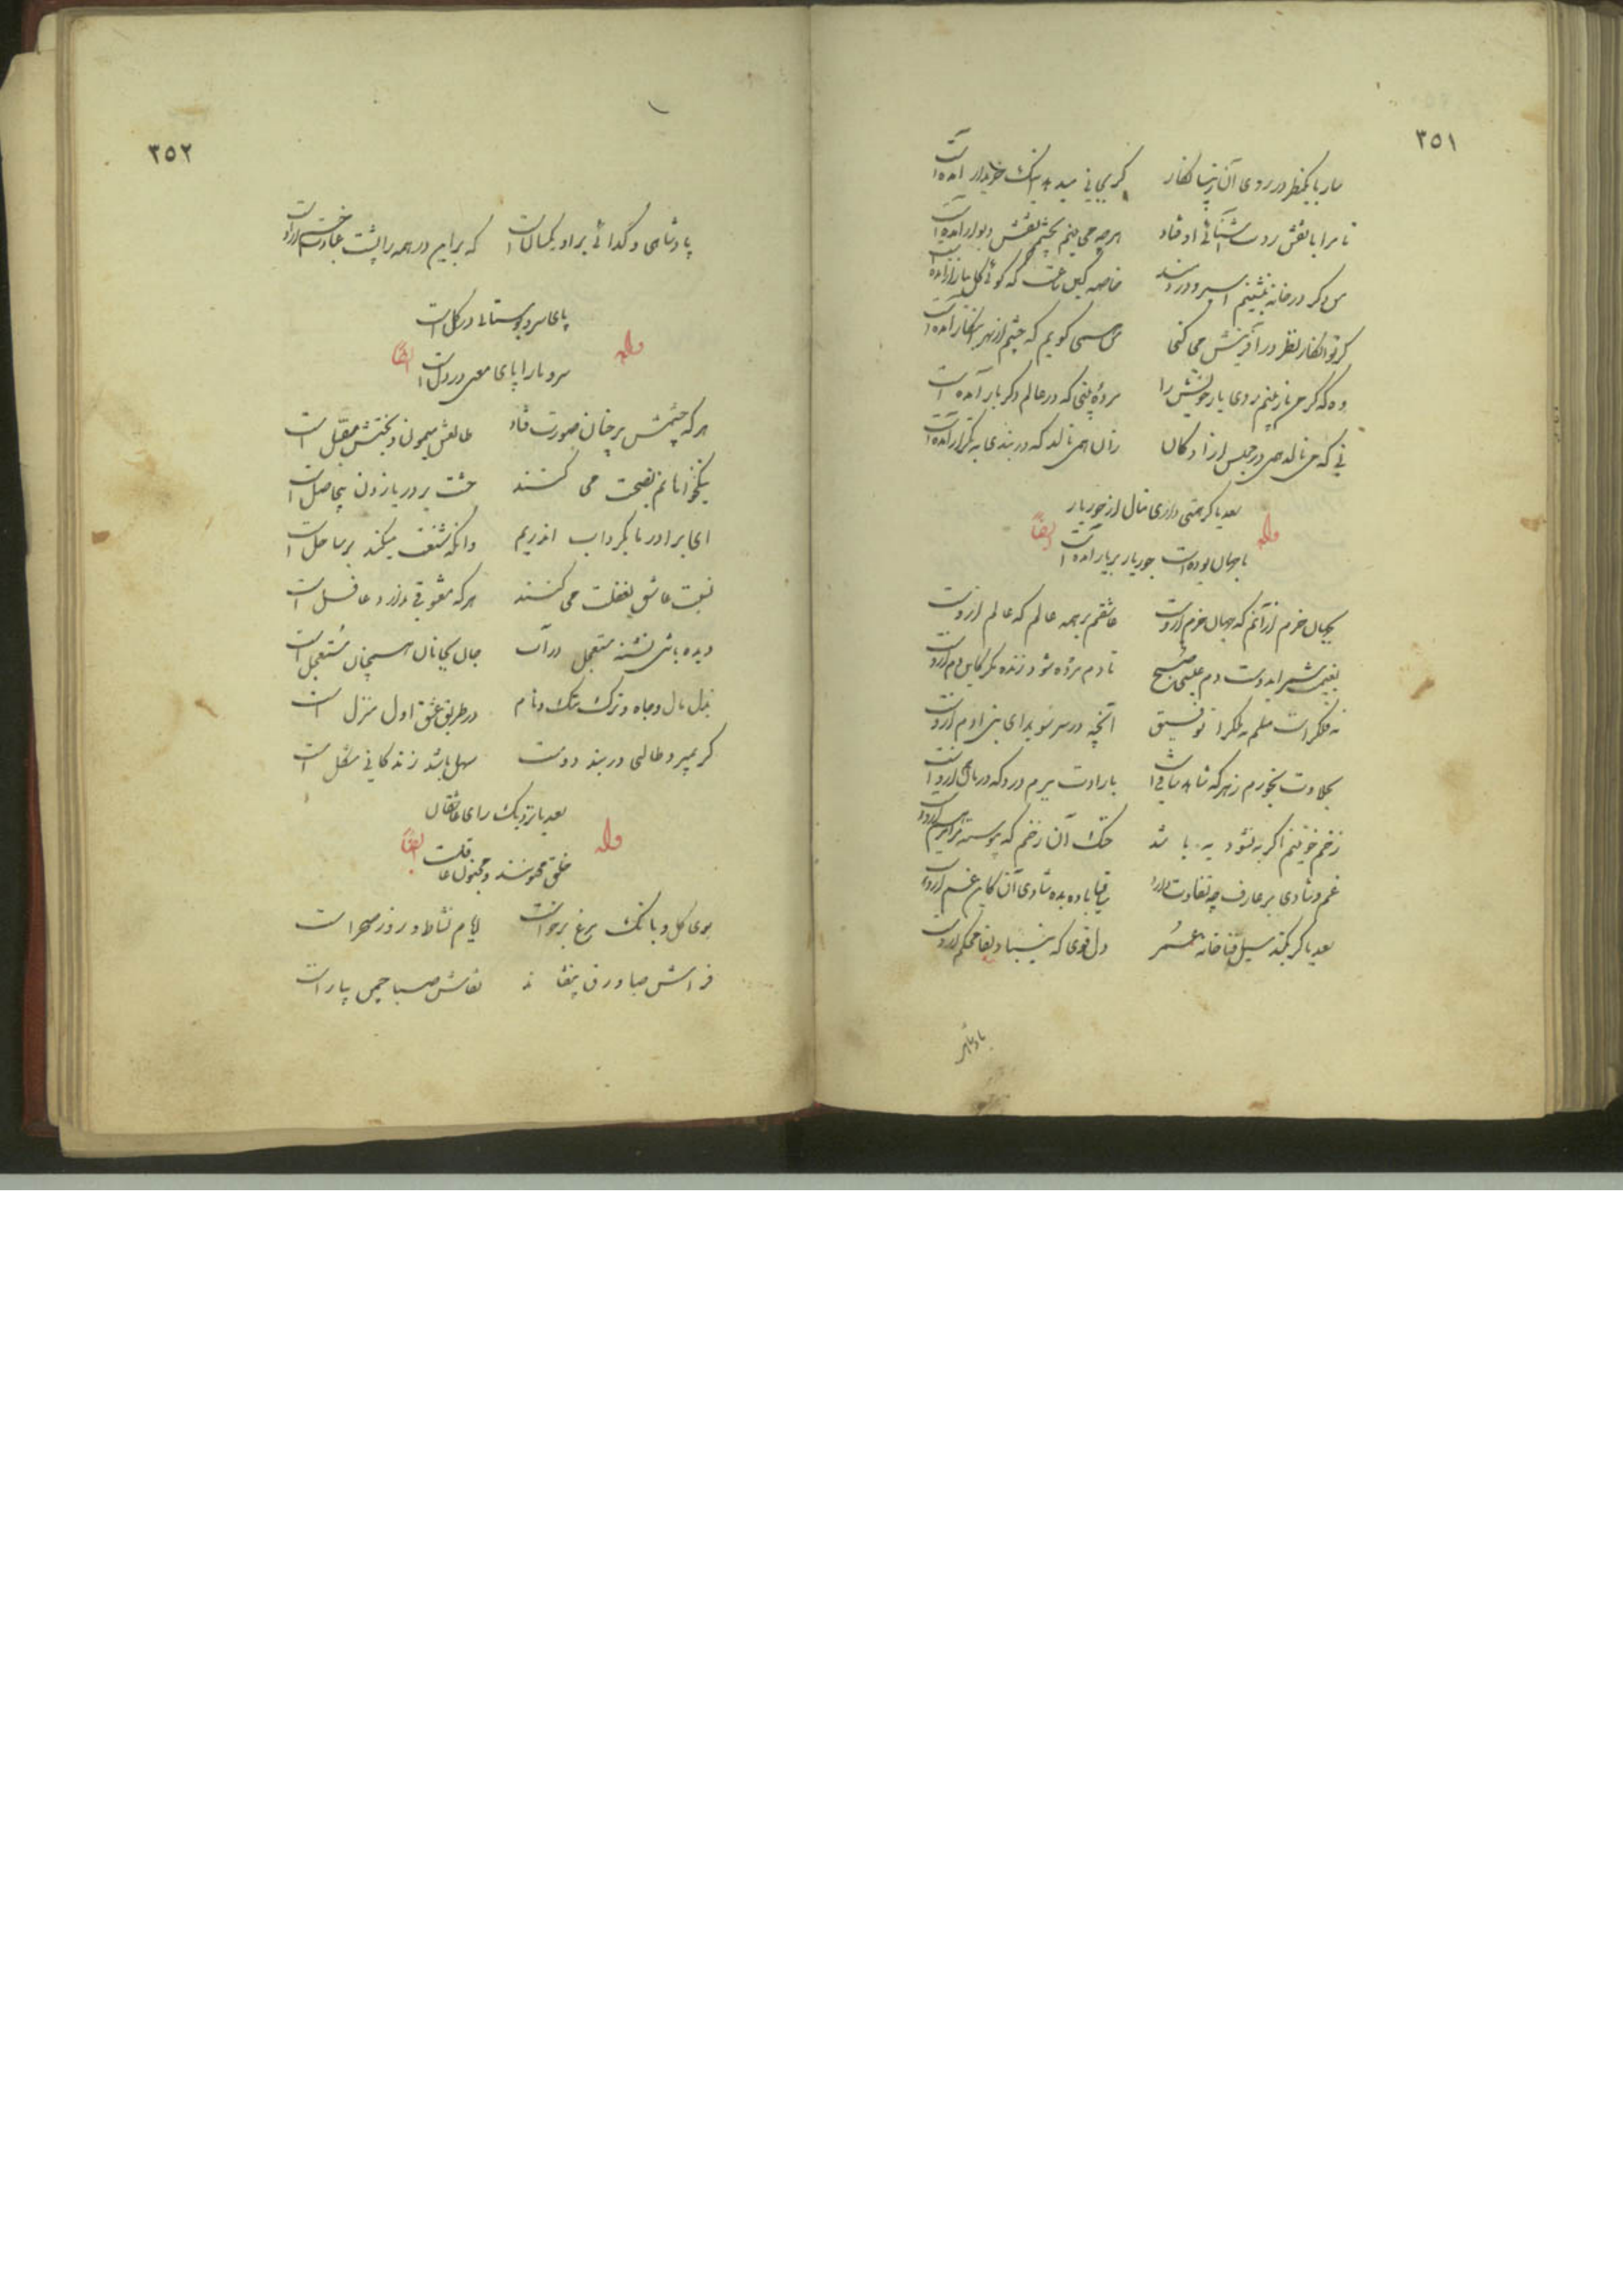 ۳۵۱
سار بایکنظر در روی آن زیبا نگار گر بجانی میدهد اینک خریدار آمده است
تا مرا با نقش رویت آشنائی اوفتاد هرچه می بینم بچشمم نقش دیوار آمده است
من دگر در خانه ننشینم اسیر و دردمند خاصه کاین ساعت که گوئی گل ببازار آمده است
گر تو انکار نظر در آفرینش می کنی من همی گویم که چشم از بهر این کار آمده است
وه که گر من باز بینم روی یار خویش را مرده بینی که در عالم دگر بار آمده است
نی که می نالد همی در مجلس آزادگان زان همی نالد که در بندی به تکرار آمده است
سعدیا گر همتی داری منال از جور یار
وله ایضاً
تا جهان بوده است جور یار بر یار آمده است
بجهان خرم از آنم که جهان خرم ازوست عاشقم بر همه عالم که همه عالم ازوست
بغنیمت شمر ایدوست دم عیسی صبح تا دل مرده مگر زنده کند کاین دم ازوست
نه فلک راست مسلم نه ملک را توفیق آنچه در سر سویدای بنی آدم ازوست
بحلاوت بخورم زهر که شاهد ساقی است بارادت ببرم درد که درمان هم ازوست
زخم خونینم اگر به نشود به باشد خنک آن زخم که پیوسته مرا مرهم ازوست
غم و شادی بر عارف چه تفاوت دارد ساقیا باده بده شادی آن کاین غم ازوست
سعدیا گر بکند سیل فنا خانه عمر دل قوی دار که بنیاد بقا محکم ازوست
پادشاهی
۳۵۲
پادشاهی و گدائی بر او یکسان است که بر این در همه را پشت عبادت خم ازوست
پای سرو بوستانی در گل است
وله ایضاً
سرو ما را پای معنی در دل است
هرکه چشمش بر چنان صورت فتاد طالعش میمون و بختش مقبل است
نیکخواهانم نصیحت می کنند خشت بر دریا زدن بیحاصل است
ای برادر ما بگرداب اندریم وانکه شنعت میکند بر ساحل است
نسبت عاشق بغفلت می کنند هرکه معشوقی ندارد غافل است
دیده باشی تشنه مستعجل در آب جان بجانان همچنان مستعجل است
بذل مال و جاه و ترک ننگ و نام در طریق عشق اول منزل است
گر بمیرد طالبی در بند دوست سهل باشد زندگانی مشکل است
سعدیا نزدیک رای عاشقان
وله ایضاً
خلق مجنونند و مجنون عاقلست
بوی گل و بانگ مرغ برخاست ایام نشاط و روز صحراست
فراش صبا ورق بیفشاند نقاش صبا چمن بیاراست